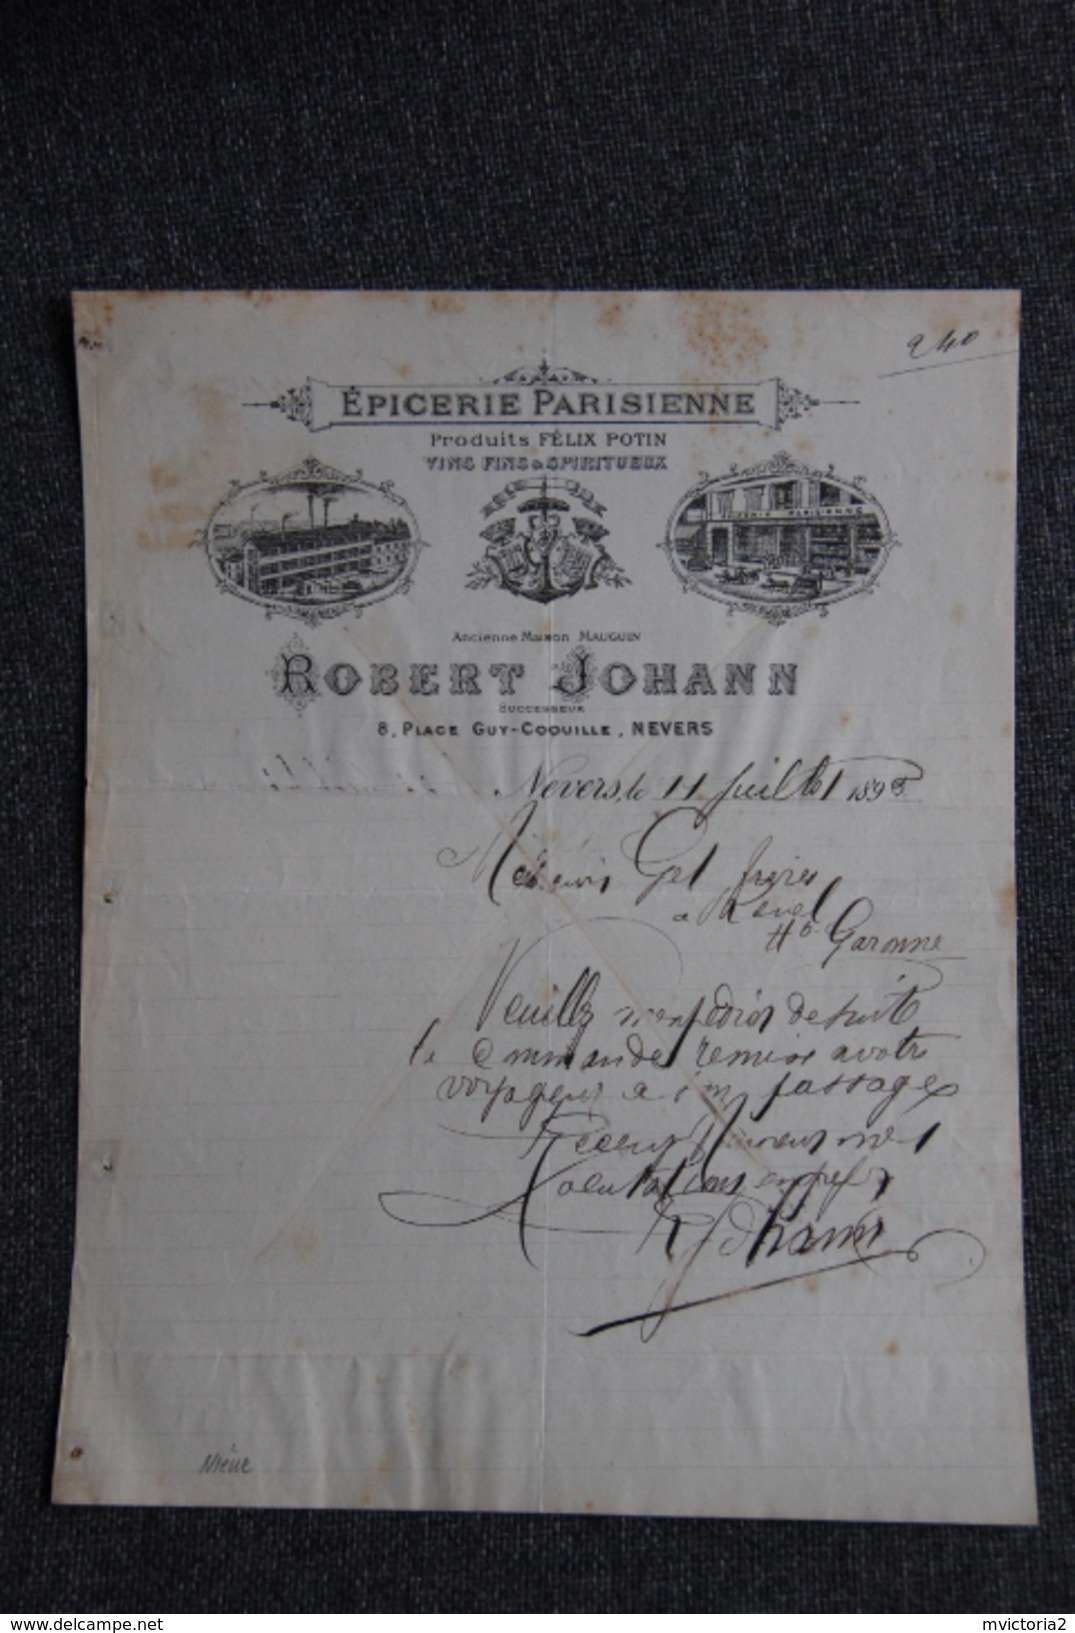 240
ÉPICERIE PARISIENNE
Produits FÉLIX POTIN
VINS FINS & SPIRITUEUX
EPICERIE PARISIENNE
Ancienne Maison MAUGUIN
ROBERT JOHANN
SUCCESSEUR
8, PLACE GUY-COQUILLE, NEVERS
Nevers, le 11 Juillet 1898
Messieurs Get frères
a Revel
Hte Garonne
Veuillez m'expédier de suite
la commande remise a votre
voyageur a son passage
Recevez Messieurs mes
Salutations empres
R Johann
Nièvre
delcampe.net
mvictoria2